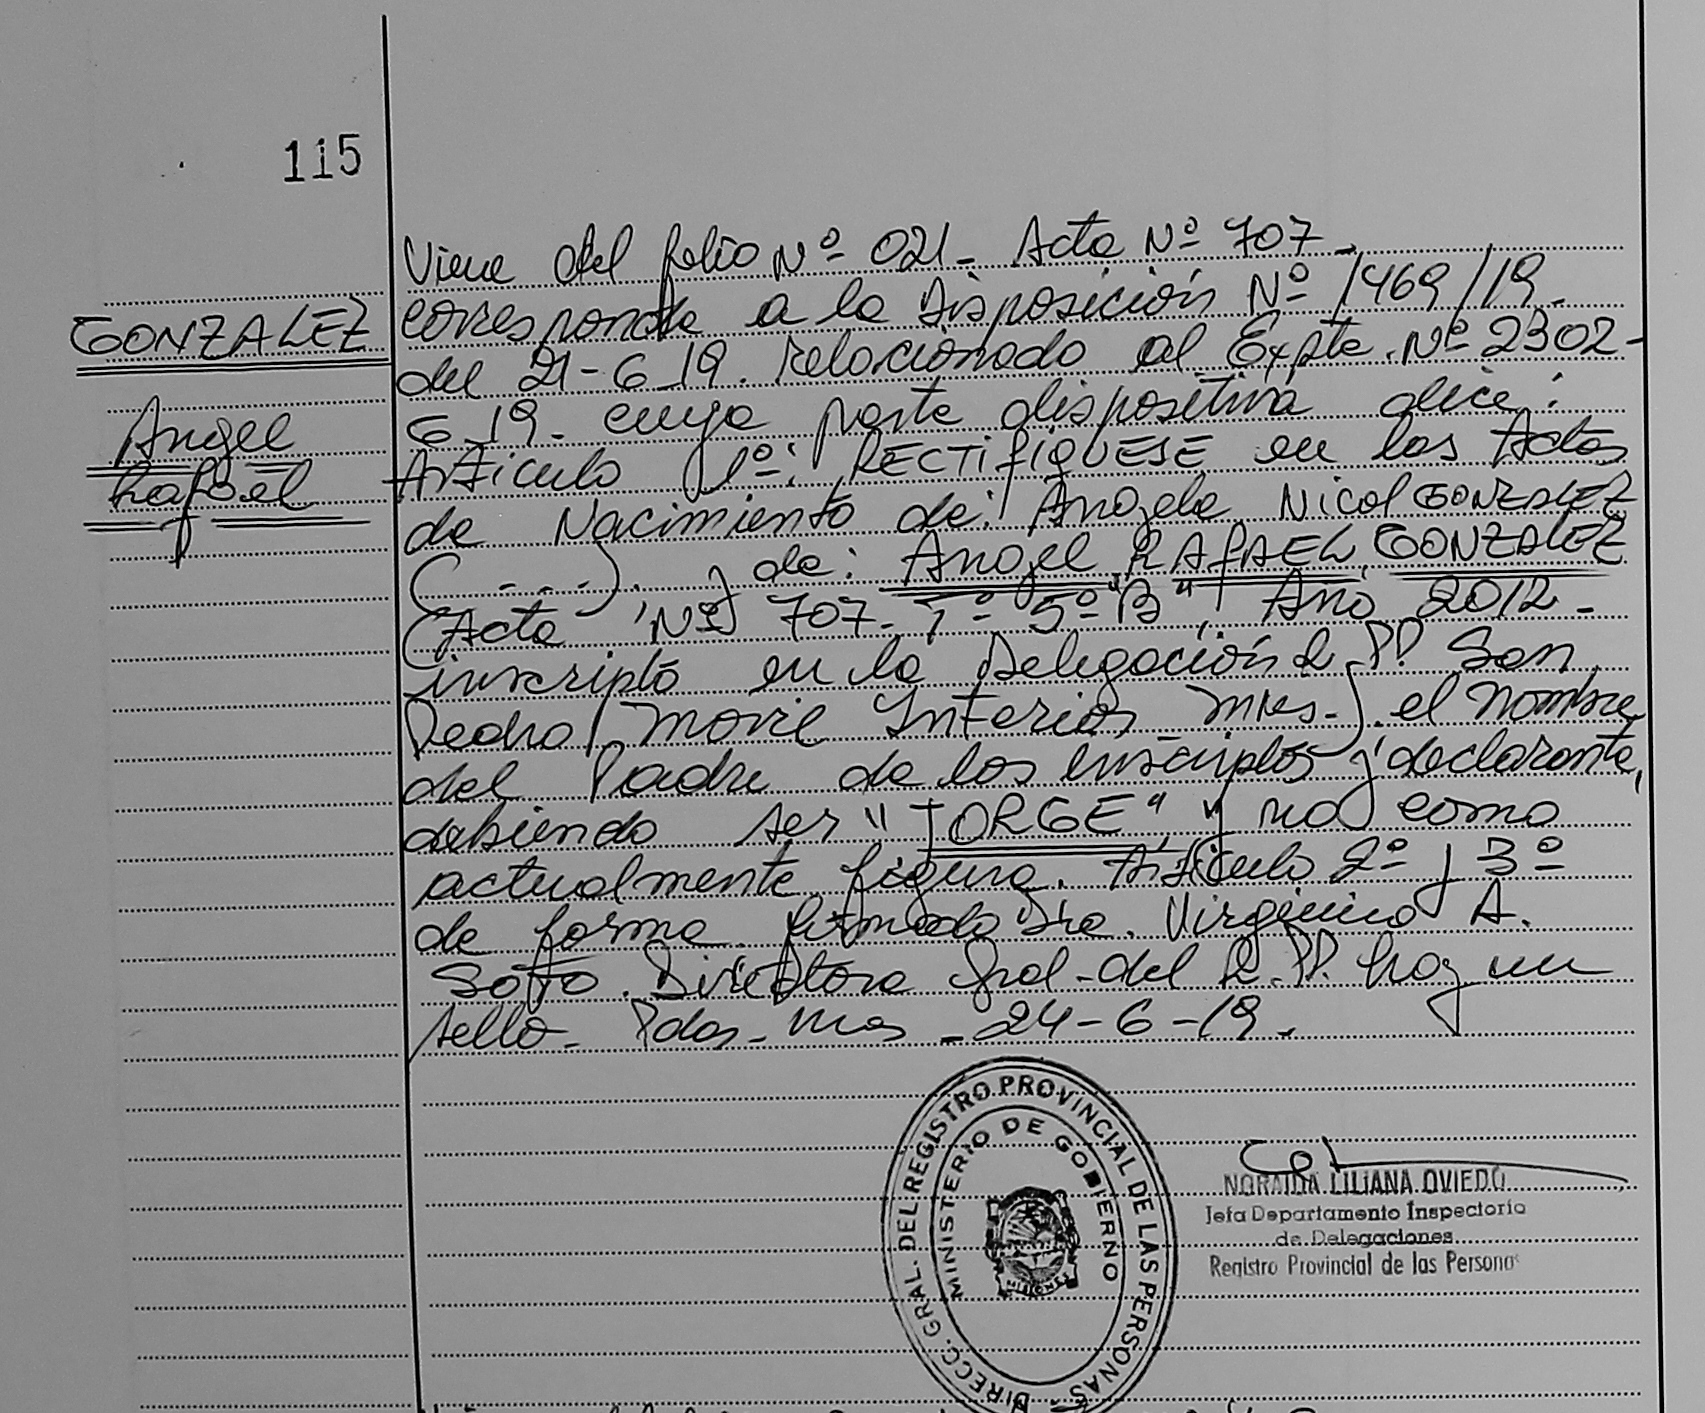 115
Viene del folio Nº 021_ Acta Nº 707_
GONZALEZ
corresponde a la Disposición Nº 1469/19_
del 21-6_19. Relacionado al Expte. Nº 2302-
Angel
6_19_ cuya parte dispositiva dice:
Rafael
Articulo 1º: RECTIFIQUESE en las Actas
de Nacimiento de: Angela Nicol GONZALEZ
(......). y de: Angel RAFAEL GONZALEZ
(Acta Nº 707_ Tº 5º "B", Año 2012_
inscripto en la Delegación R.PP. San
Pedro Movil Interior_ Mnes_). el nombre
del Padre de los inscriptos y declarante,
debiendo ser "JORGE" y no como
actualmente figura. Articulo 2º y 3º
de forma. firmado Dra. Virginia A.
Sotto. Directora Gral_del R.PP. hay un
sello_ Pdas_Mnes _24-6-19_
NORAIDA LILIANA OVIEDO
Jefa Departamento Inspectoría
de Delegaciones
Registro Provincial de las Personas
DIRECC. GRAL. DEL REGISTRO PROVINCIAL DE LAS PERSONAS
MINISTERIO DE GOBIERNO
MISIONES